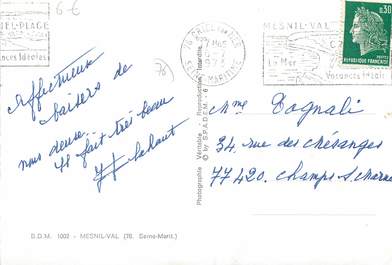 6 €
NEL-PLAGE
ances Idéales
76 CRIEL SUR MER
SEINE-MARITIME
MESNIL-VAL
La Mer
Vacances Idéales
0,30
REPUBLIQUE FRANÇAISE
76
Affectueux
baisers de
nous deux.
Il fait très beau
Photographie Véritable - Reproduction Interdite
© by S.P.A.D.E.M.
Mme Tognali
34, rue des Mésanges
77420. Champs s. Marne
S.D.M. 1002 - MESNIL-VAL (76. Seine-Marit.)